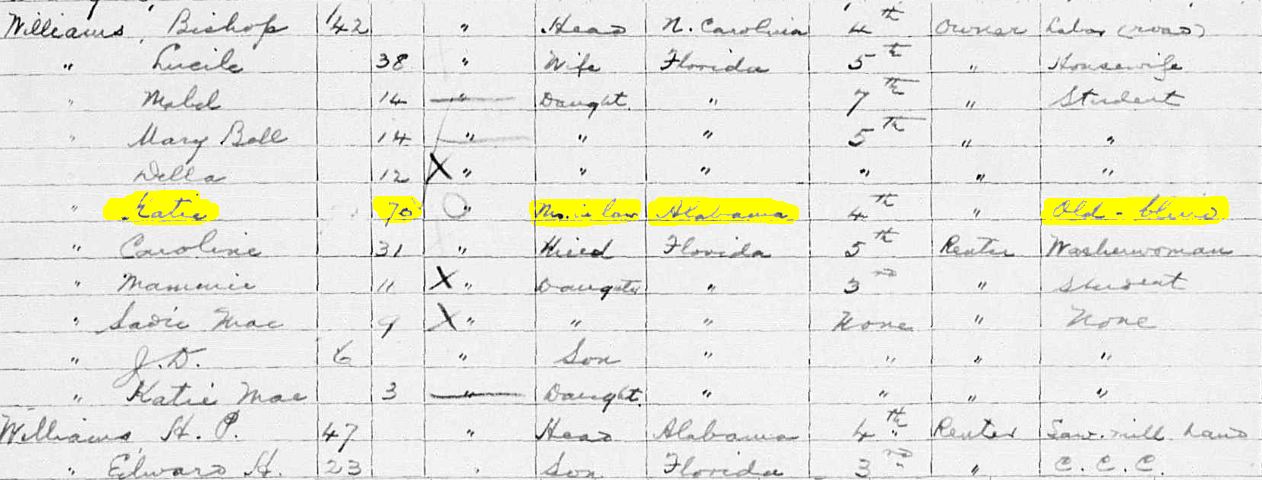 Williams, Bishop 42 " Head N. Carolina 4th Owner Labor (road)
" Lucile 38 " Wife Florida 5th " Housewife
" Mabel 14 " Daught. " 7th " Student
" Mary Bell 14 " " " 5th " "
" Della 12 X " " " " " "
" Katie 70 " Mo. in law Alabama 4th " Old - blind
" Caroline 31 " Hired Florida 5th Renter Washerwoman
" Mammie 11 X " Daughter " 3rd " Student
" Sadie Mae 9 X " " " None " None
" J.D. 6 " Son " " " "
" Katie Mae 3 " Daught. " " " "
Williams H. P. 47 " Head Alabama 4th Renter Saw-mill hand
" Edward H. 23 " Son Florida 3rd " C.C.C.